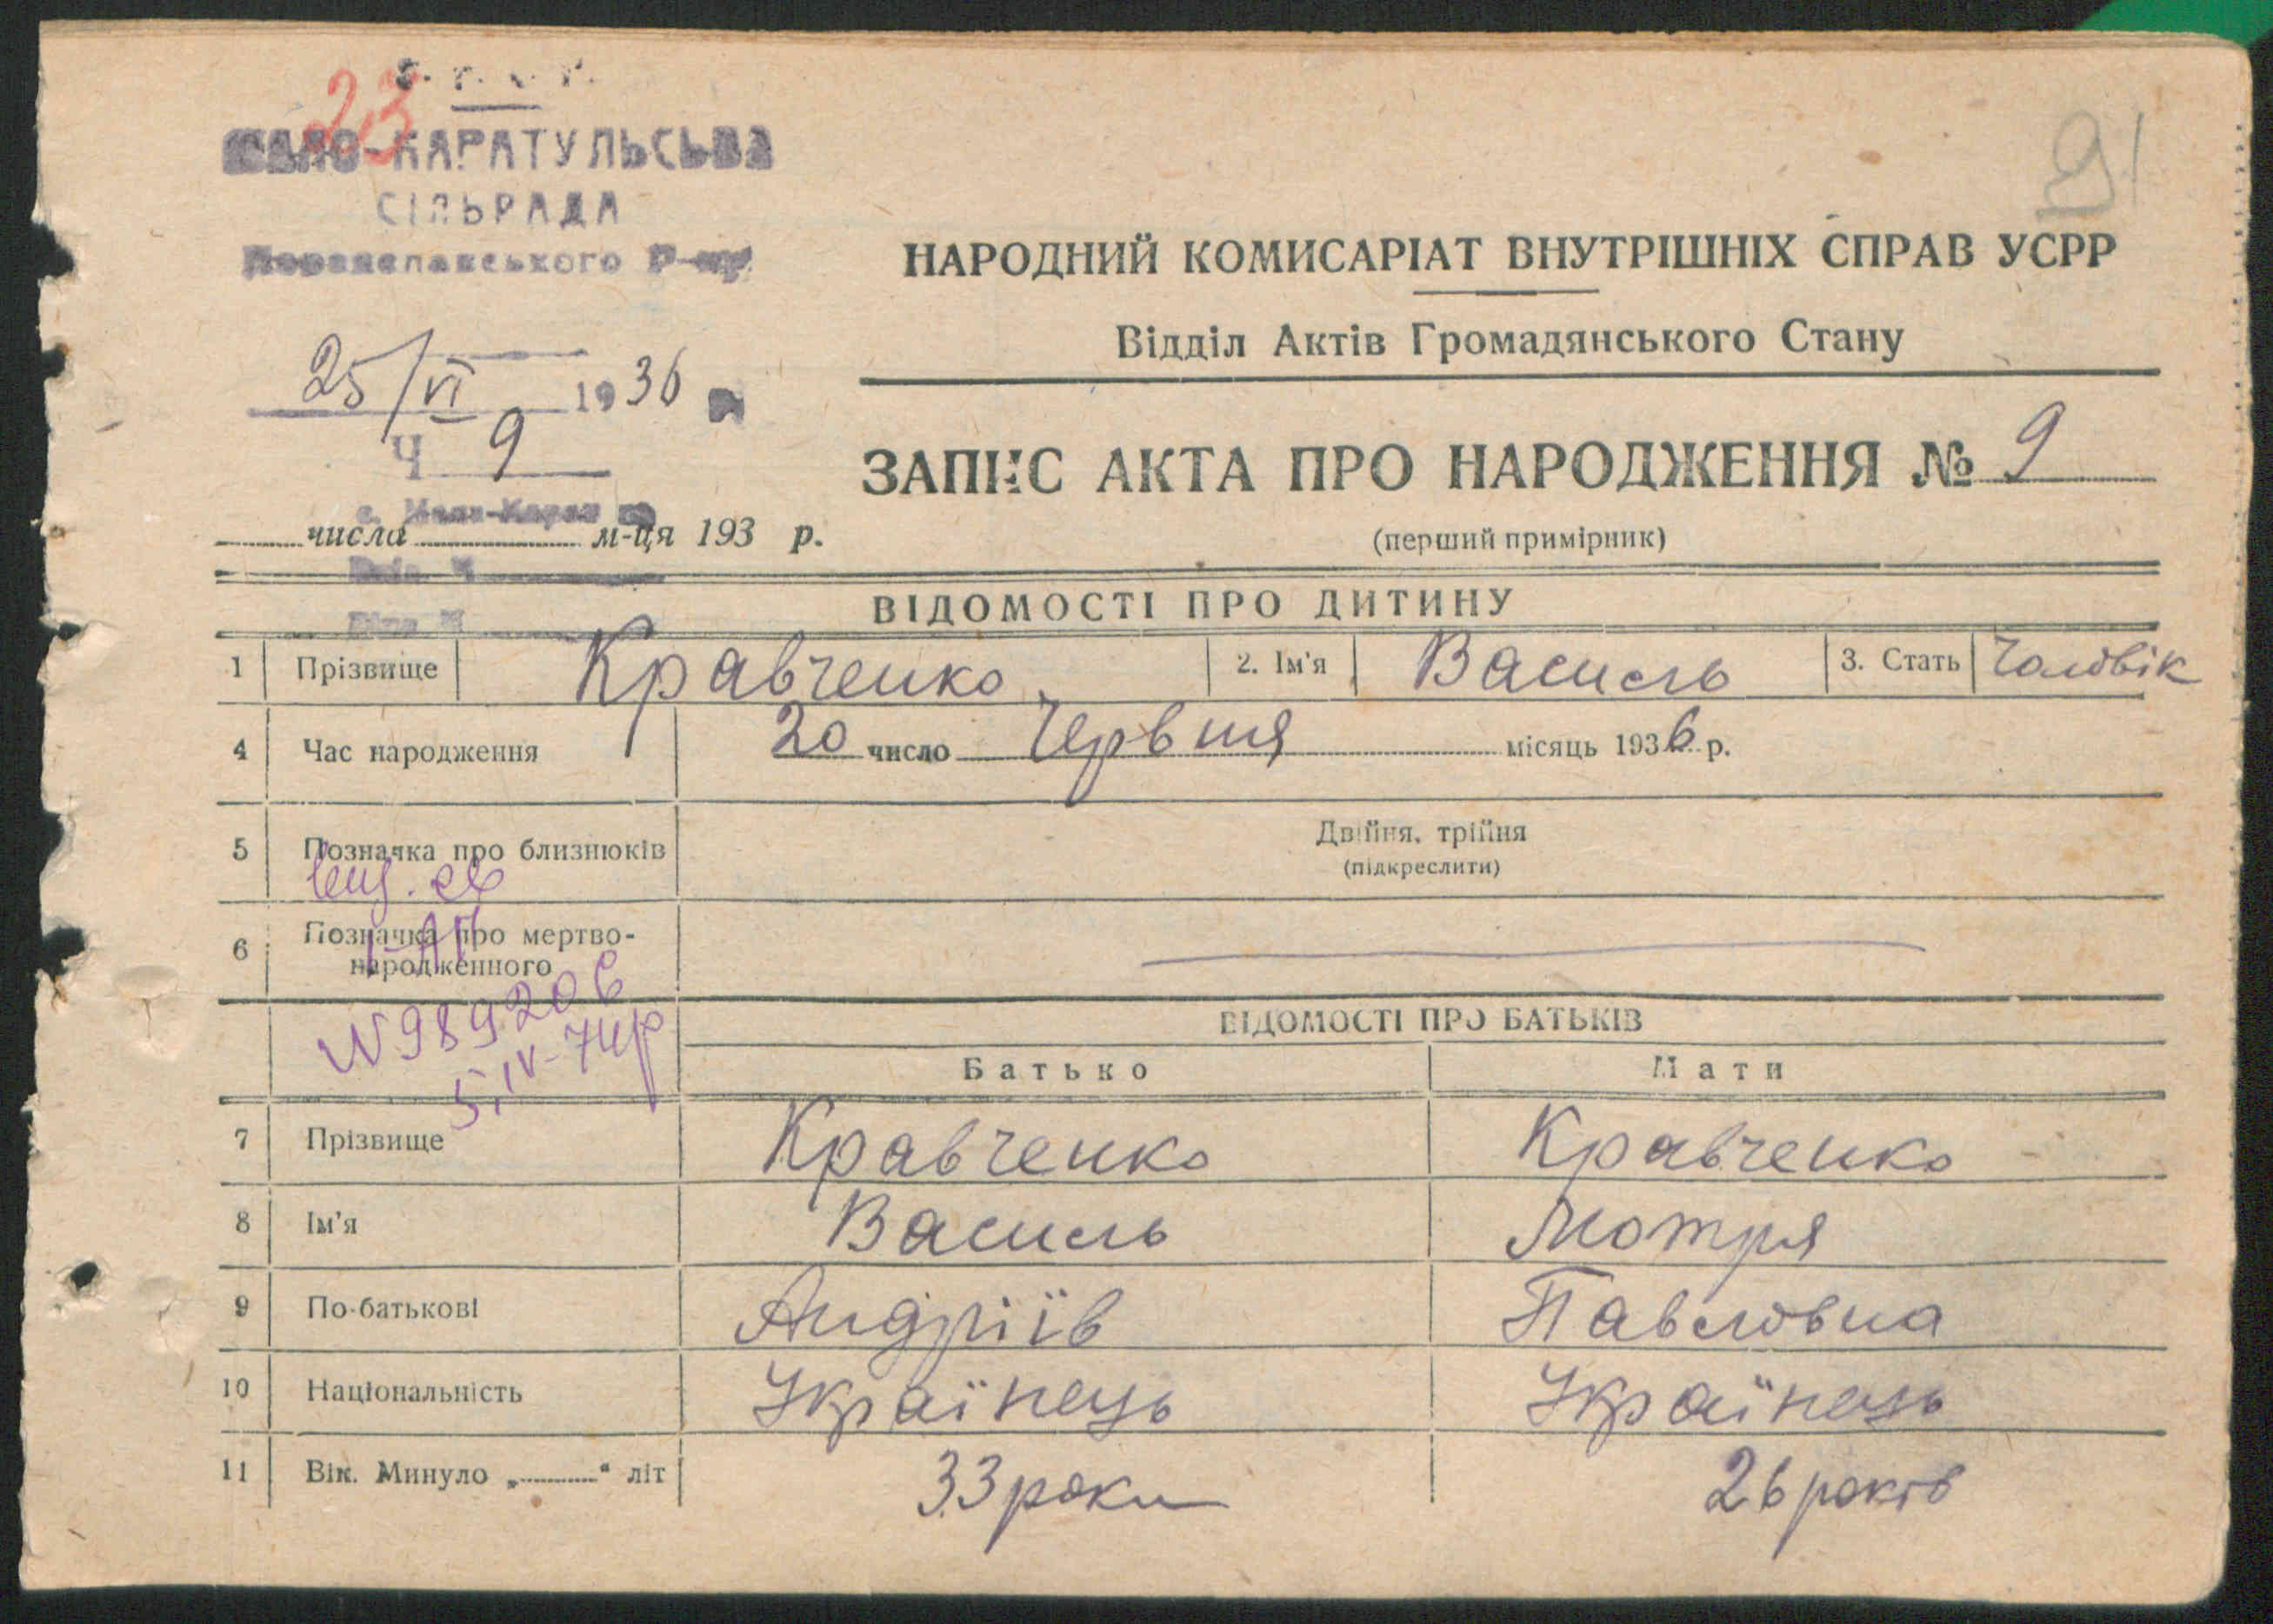 23
КАРАТУЛЬСЬКА
СІЛЬРАДА
Переяславського Р-ну
91
НАРОДНИЙ КОМИСАРІАТ ВНУТРІШНІХ СПРАВ УСРР
Відділ Актів Громадянського Стану
25/VI 1936
Ч 9
ЗАПИС АКТА ПРО НАРОДЖЕННЯ № 9
(перший примірник)
числа м-ця 193 р.
ВІДОМОСТІ ПРО ДИТИНУ
1 Прізвище Кравченко 2. Ім'я Василь 3. Стать Чоловік
4 Час народження 20 число Червня місяць 1936 р.
5 Позначка про близнюків Двійня, трійня
(підкреслити)
6 Позначка про мертво-
народженного
N 989206
5.IV-74р
ВІДОМОСТІ ПРО БАТЬКІВ
Батько Мати
7 Прізвище Кравченко Кравченко
8 Ім'я Василь Мотря
9 По-батькові Андріїв Павловна
10 Національність Українець Українець
11 Вік. Минуло „ “ літ 33 роки 26 років